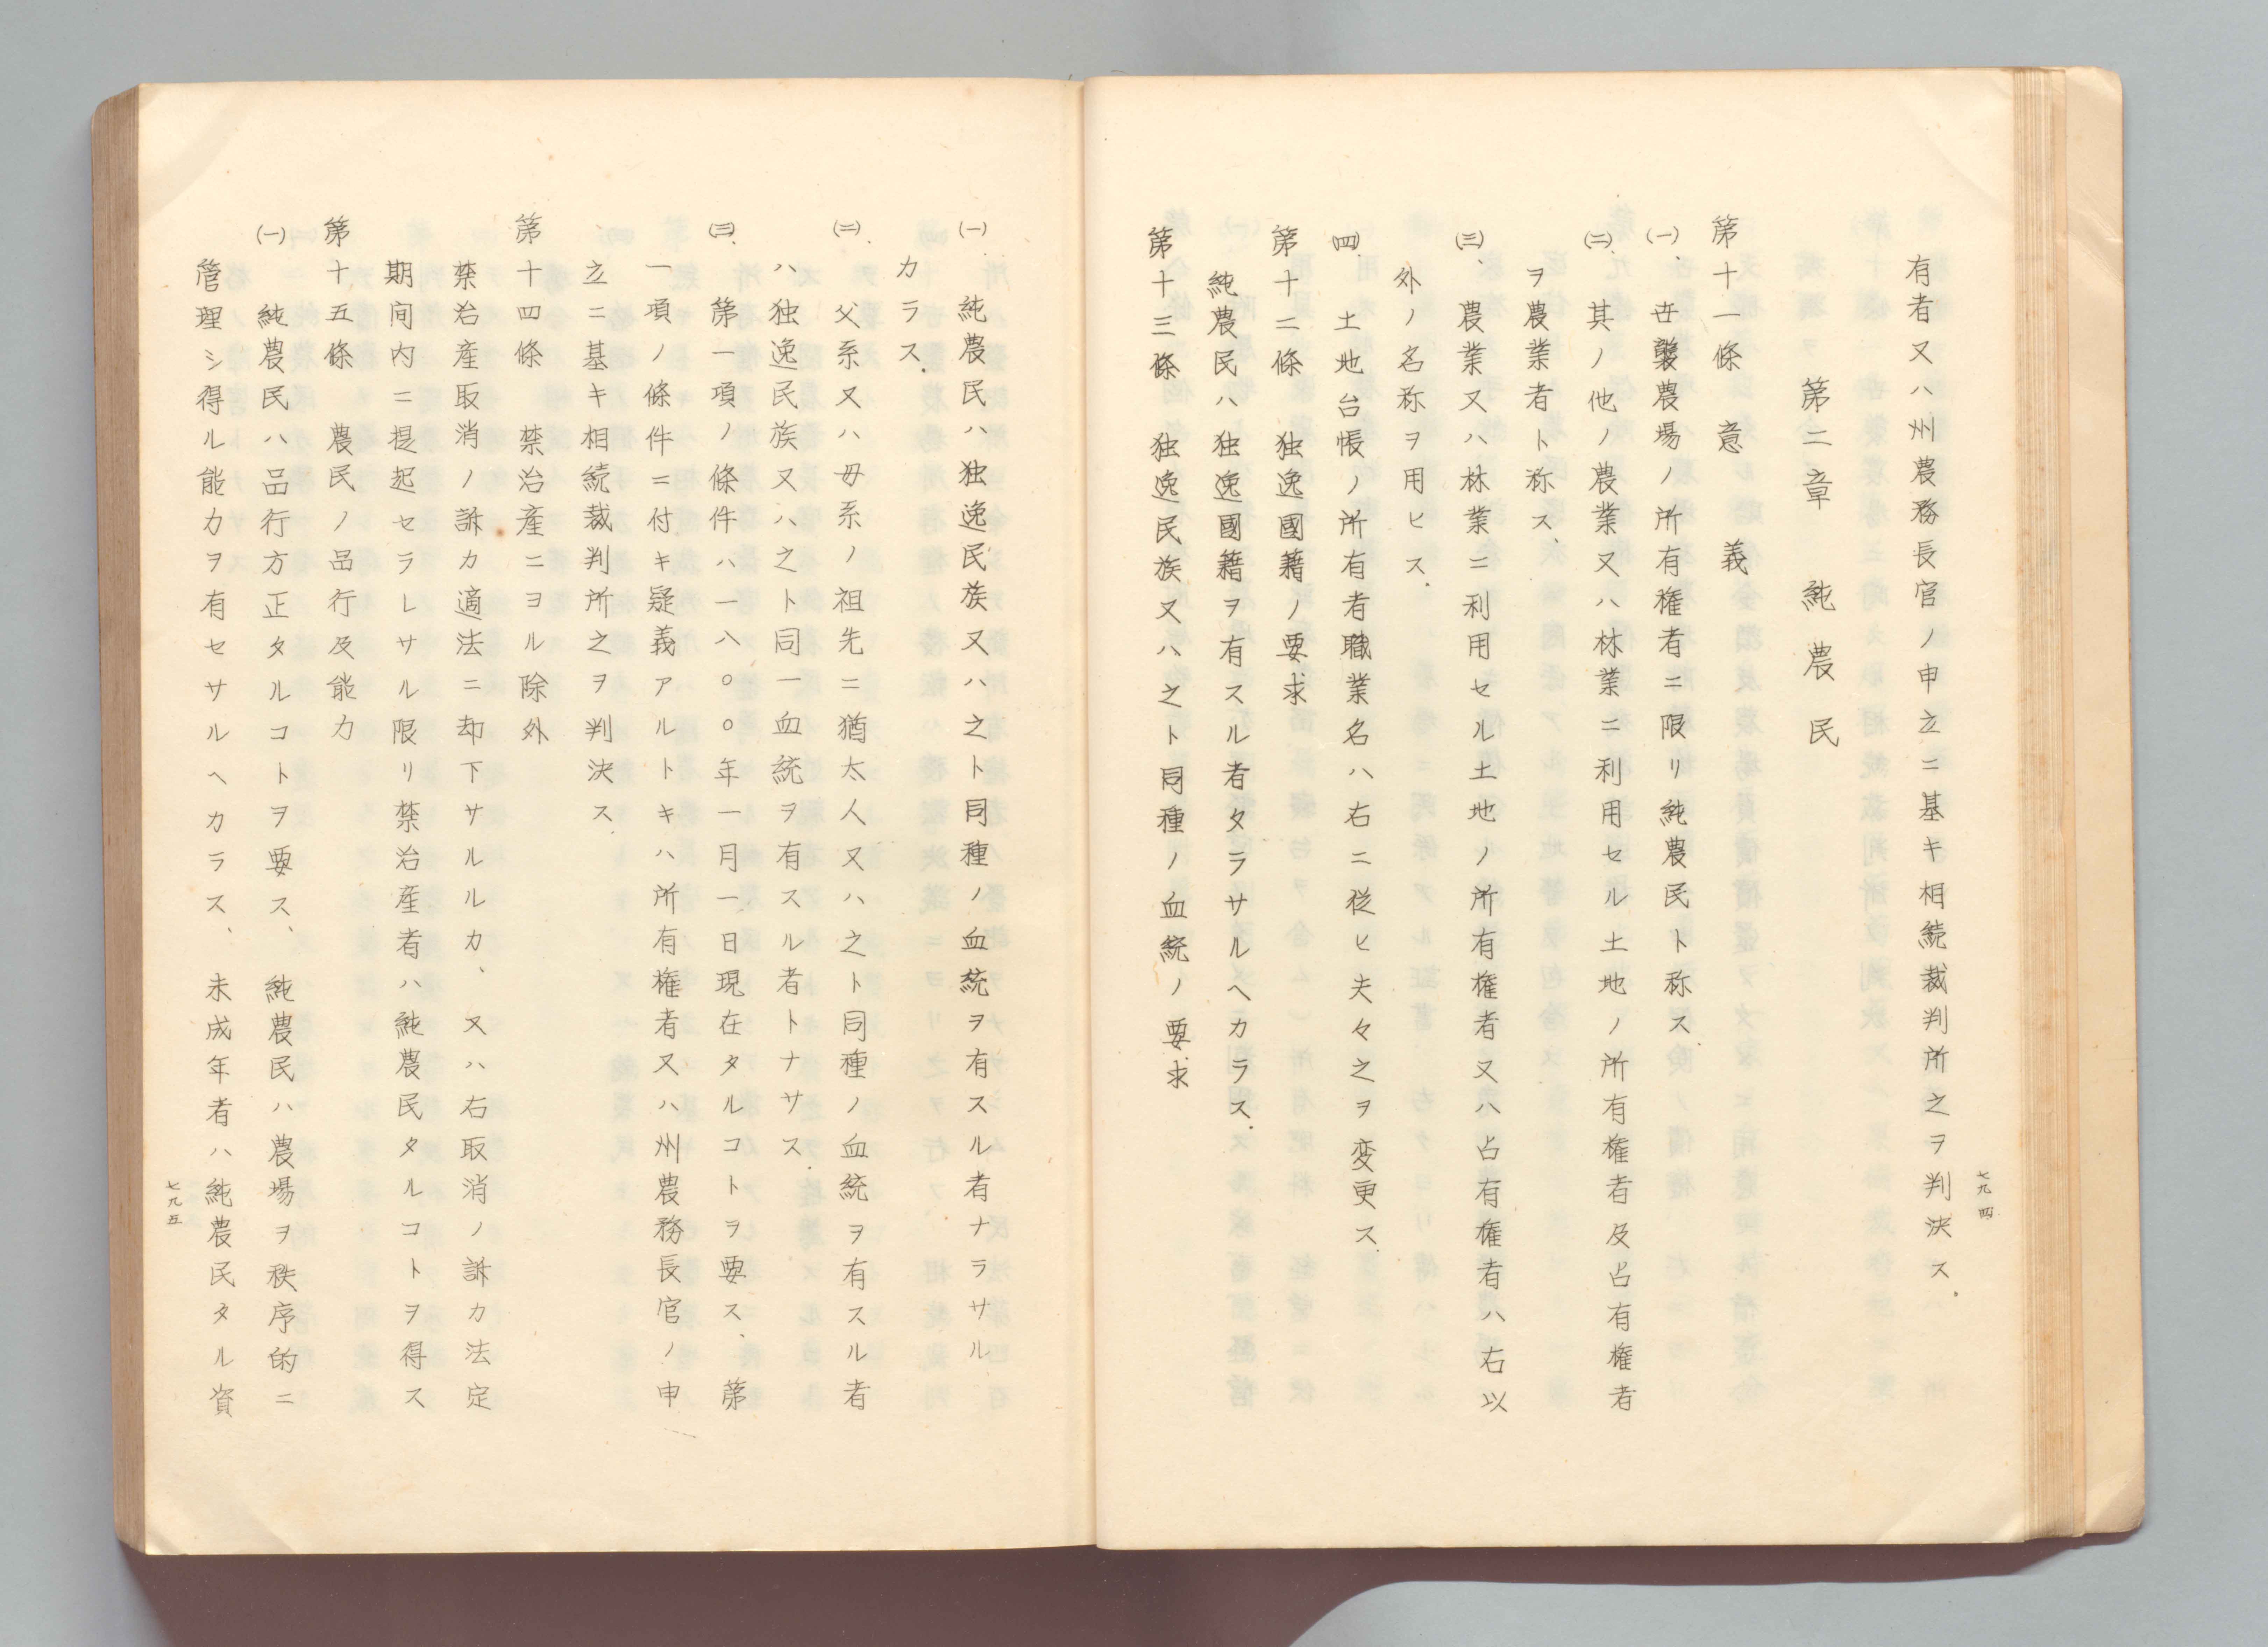 有者又ハ州農務長官ノ申立ニ基キ相続裁判所之ヲ判決ス、
第二章　純農民
第十一條　意　義
(一)、世襲農場ノ所有権者ニ限リ純農民ト称ス、
(二)、其ノ他ノ農業又ハ林業ニ利用セル土地ノ所有権者及占有権者
ヲ農業者ト称ス、
(三)、農業又ハ林業ニ利用セル土地ノ所有権者又ハ占有権者ハ右以
外ノ名称ヲ用ヒス.
(四)、土地台帳ノ所有者職業名ハ右ニ従ヒ夫々之ヲ変更ス.
第十二條　独逸國籍ノ要求
純農民ハ独逸國籍ヲ有スル者タラサルヘカラス.
第十三條　独逸民族又ハ之ト同種ノ血統ノ要求
七九四
(一)　純農民ハ独逸民族又ハ之ト同種ノ血統ヲ有スル者ナラサル
カラス.
(二)、父系又ハ毋系ノ祖先ニ猶太人又ハ之ト同種ノ血統ヲ有スル者
ハ独逸民族又ハ之ト同一血統ヲ有スル者トナサス.
(三)、第一項ノ條件ハ一八〇〇年一月一日現在タルコトヲ要ス、第
一項ノ條件ニ付キ疑義アルトキハ所有権者又ハ州農務長官ノ申
立ニ基キ相続裁判所之ヲ判決ス.
第十四條　禁治産ニヨル除外
禁治産取消ノ訴カ適法ニ却下サルルカ、又ハ右取消ノ訴カ法定
期间内ニ提起セラレサル限リ禁治産者ハ純農民タルコトヲ得ス
第十五條　農民ノ品行及能力
(一)　純農民ハ品行方正タルコトヲ要ス、純農民ハ農場ヲ秩序的ニ
管理シ得ル能力ヲ有セサルヘカラス、未成年者ハ純農民タル資
七九五